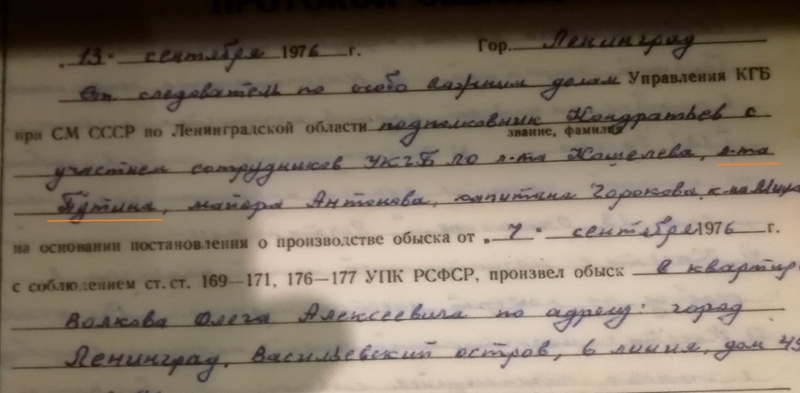 ПРОТОКОЛ ОБЫСКА
„13" сентября 1976 г. Гор. Ленинград
Ст. следователь по особо важным делам Управления КГБ
при СМ СССР по Ленинградской области подполковник Кондратьев с
звание, фамилия
участием сотрудников УКГБ ЛО л-та Кошелева, л-та
Путина, майора Антонова, капитана Горохова, к-на
на основании постановления о производстве обыска от „7" сентября 1976 г.
с соблюдением ст. ст. 169—171, 176—177 УПК РСФСР, произвел обыск в
Волкова Олега Алексеевича по адресу: город
Ленинград, Васильевский остров, 6 линия, дом